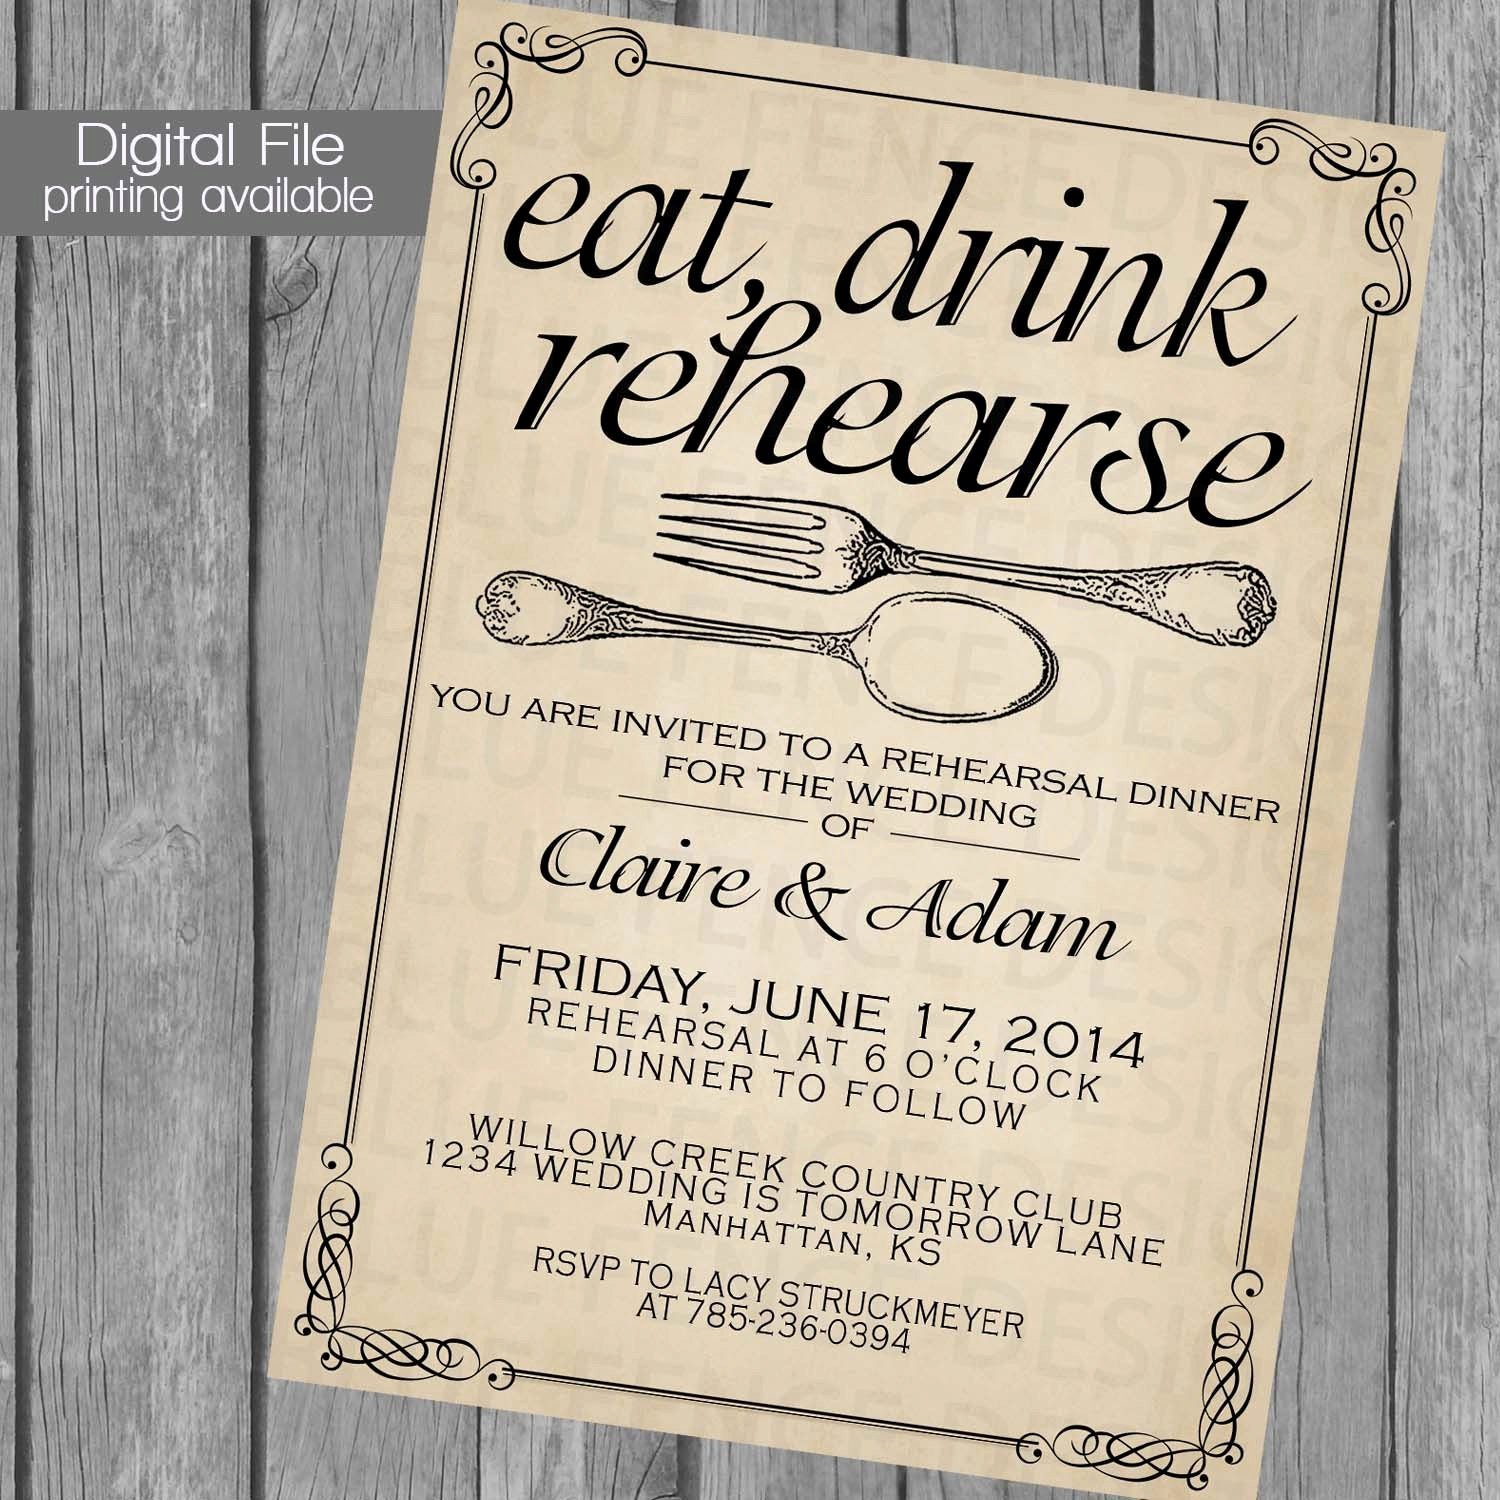 Digital File
printing available
eat, drink
rehearse
YOU ARE INVITED TO A REHEARSAL DINNER
FOR THE WEDDING
OF
Claire & Adam
FRIDAY, JUNE 17, 2014
REHEARSAL AT 6 O'CLOCK
DINNER TO FOLLOW
WILLOW CREEK COUNTRY CLUB
1234 WEDDING IS TOMORROW LANE
MANHATTAN, KS
RSVP TO LACY STRUCKMEYER
AT 785-236-0394
BLUE FENCE DESIGN